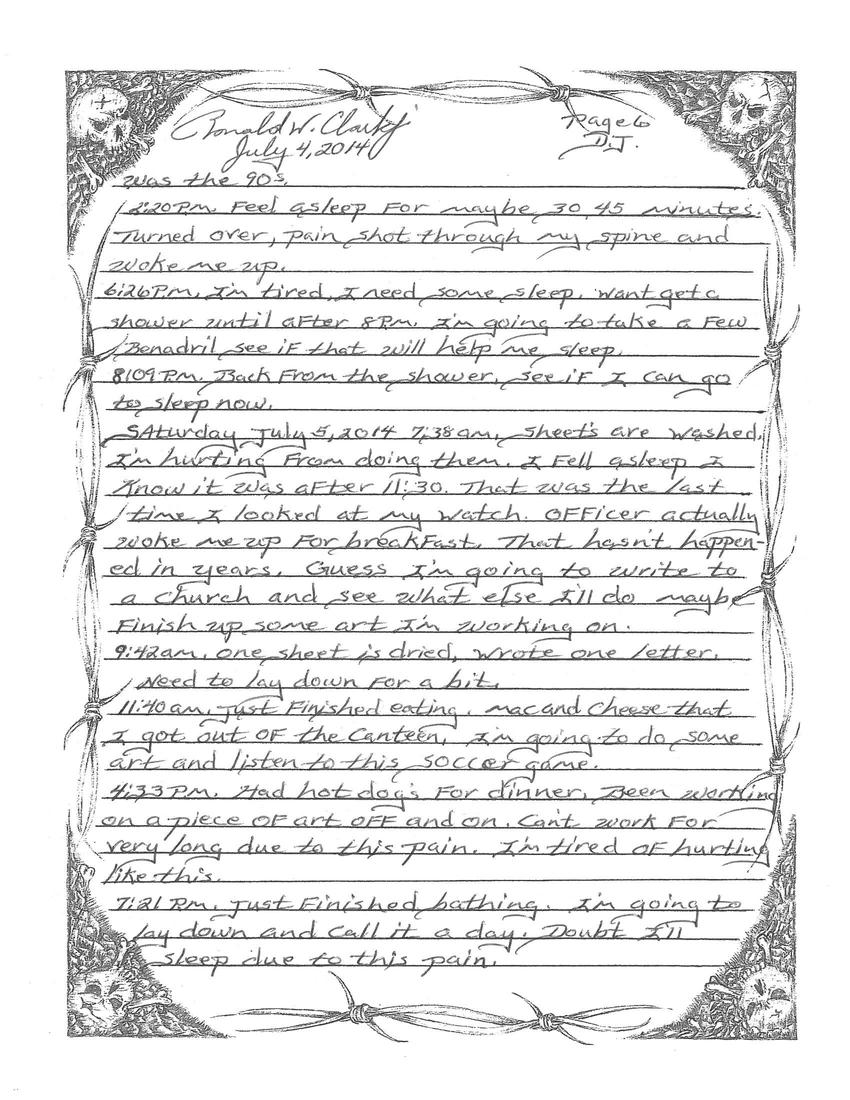 Ronald W. Clark Jr
Page 6
July 4, 2014
D.J.
was the 90s.
2:20 P.M. Feel asleep For maybe 30, 45 minutes.
Turned over, pain shot through my spine and
woke me up.
6:26 P.M. I'm tired, I need some sleep. Want get a
shower until aFter 8 P.M. I'm going to take a Few
Benadril see iF that will help me sleep.
8:09 P.M. Back From the shower, see iF I can go
to sleep now.
SAturday July 5, 2014 7:38 am, Sheet's are washed,
I'm hurting From doing them. I Fell asleep I
Know it was aFter 11:30. That was the last
time I looked at my watch. OFFicer actually
woke me up For breakFast. That hasn't happen-
ed in years. Guess I'm going to write to
a church and see what else I'll do maybe
Finish up some art I'm working on.
9:42 am, one sheet is dried, Wrote one letter.
Need to lay down For a bit.
11:40 am, just Finished eating. mac and Cheese that
I got out OF the Canteen, I'm going to do some
art and listen to this soccer game.
4:33 P.M. Had hot dog's For dinner, Been working
on a piece OF art OFF and on. Can't work For
very long due to this pain. I'm tired OF hurting
like this.
7:21 P.M. just Finished bathing. I'm going to
lay down and call it a day. Doubt I'll
sleep due to this pain.